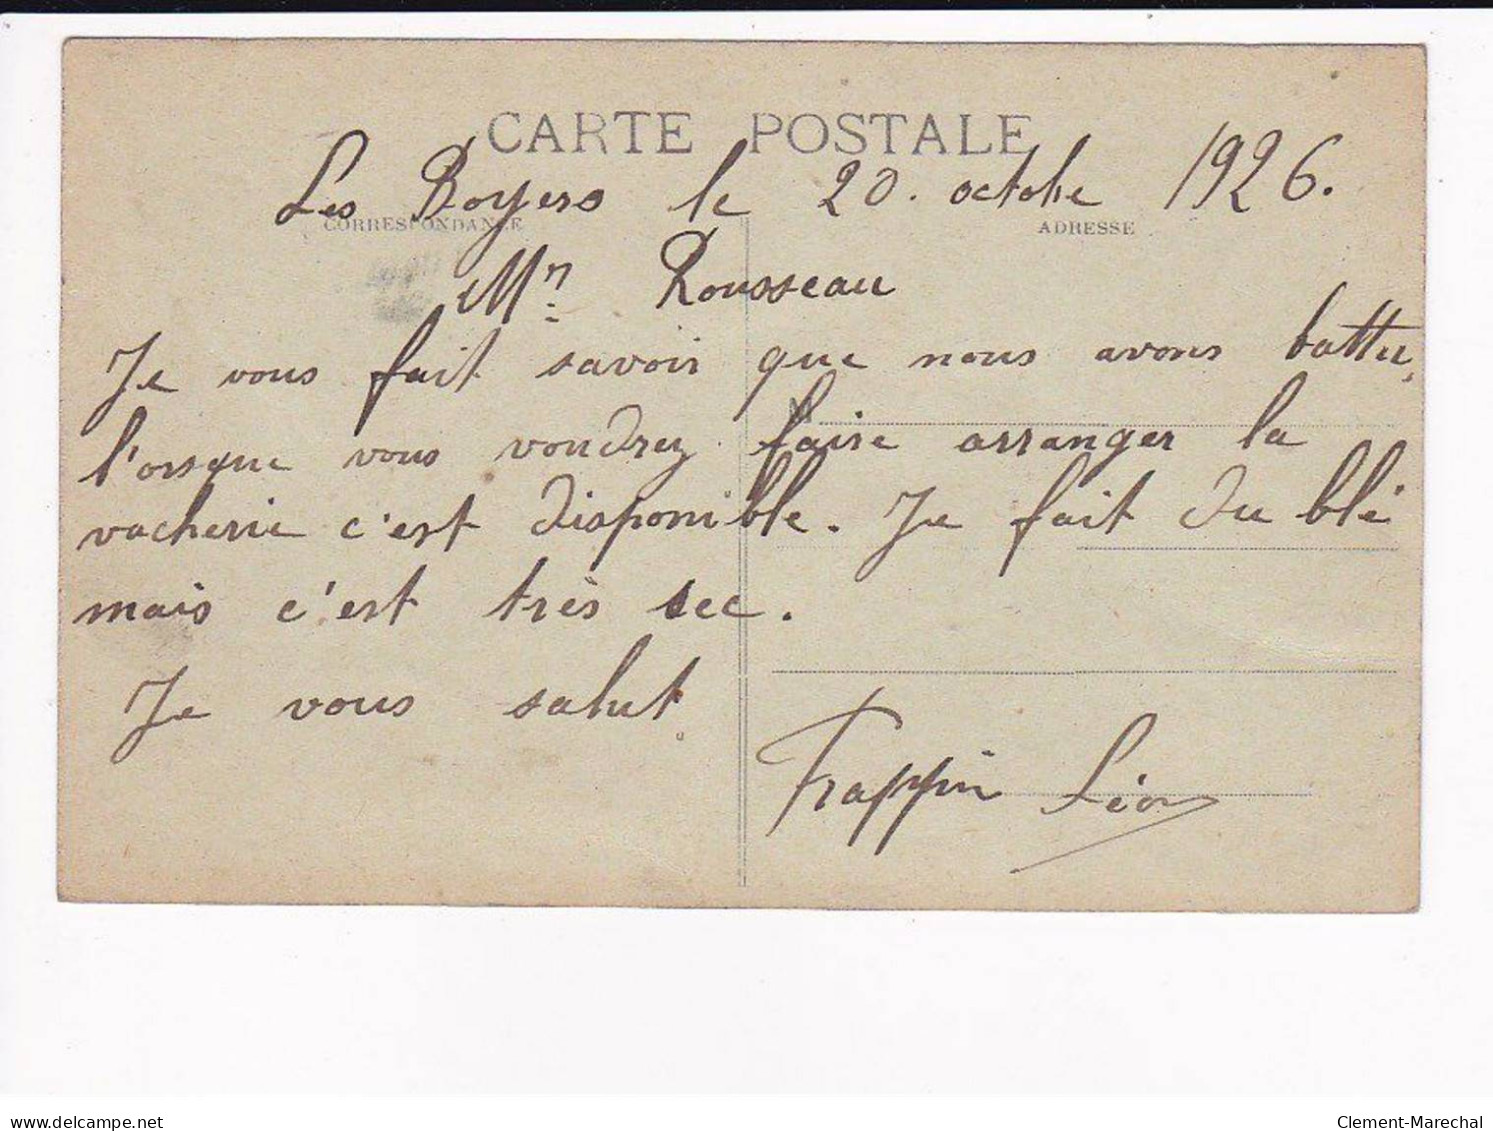 CARTE POSTALE
Les Boyers le 20. octobre 1926.
CORRESPONDANCE
ADRESSE
Mr Rousseau
Je vous fait savoir que nous avons battu,
l'orsque vous voudrez faire arranger la
vacherie c'est disponible. Je fait du blé
mais c'est très sec.
Je vous salut
Frappin Léon
delcampe.net
Clement-Marechal